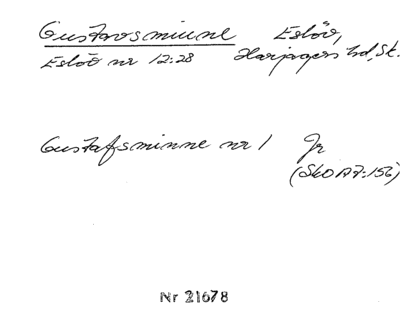 Gustavsminne Eslöv,
Eslöv nr 12:28 Harjagers hd, Sk.
Gustafsminne nr 1 Jr
(SkO A7:156)
Nr 21678